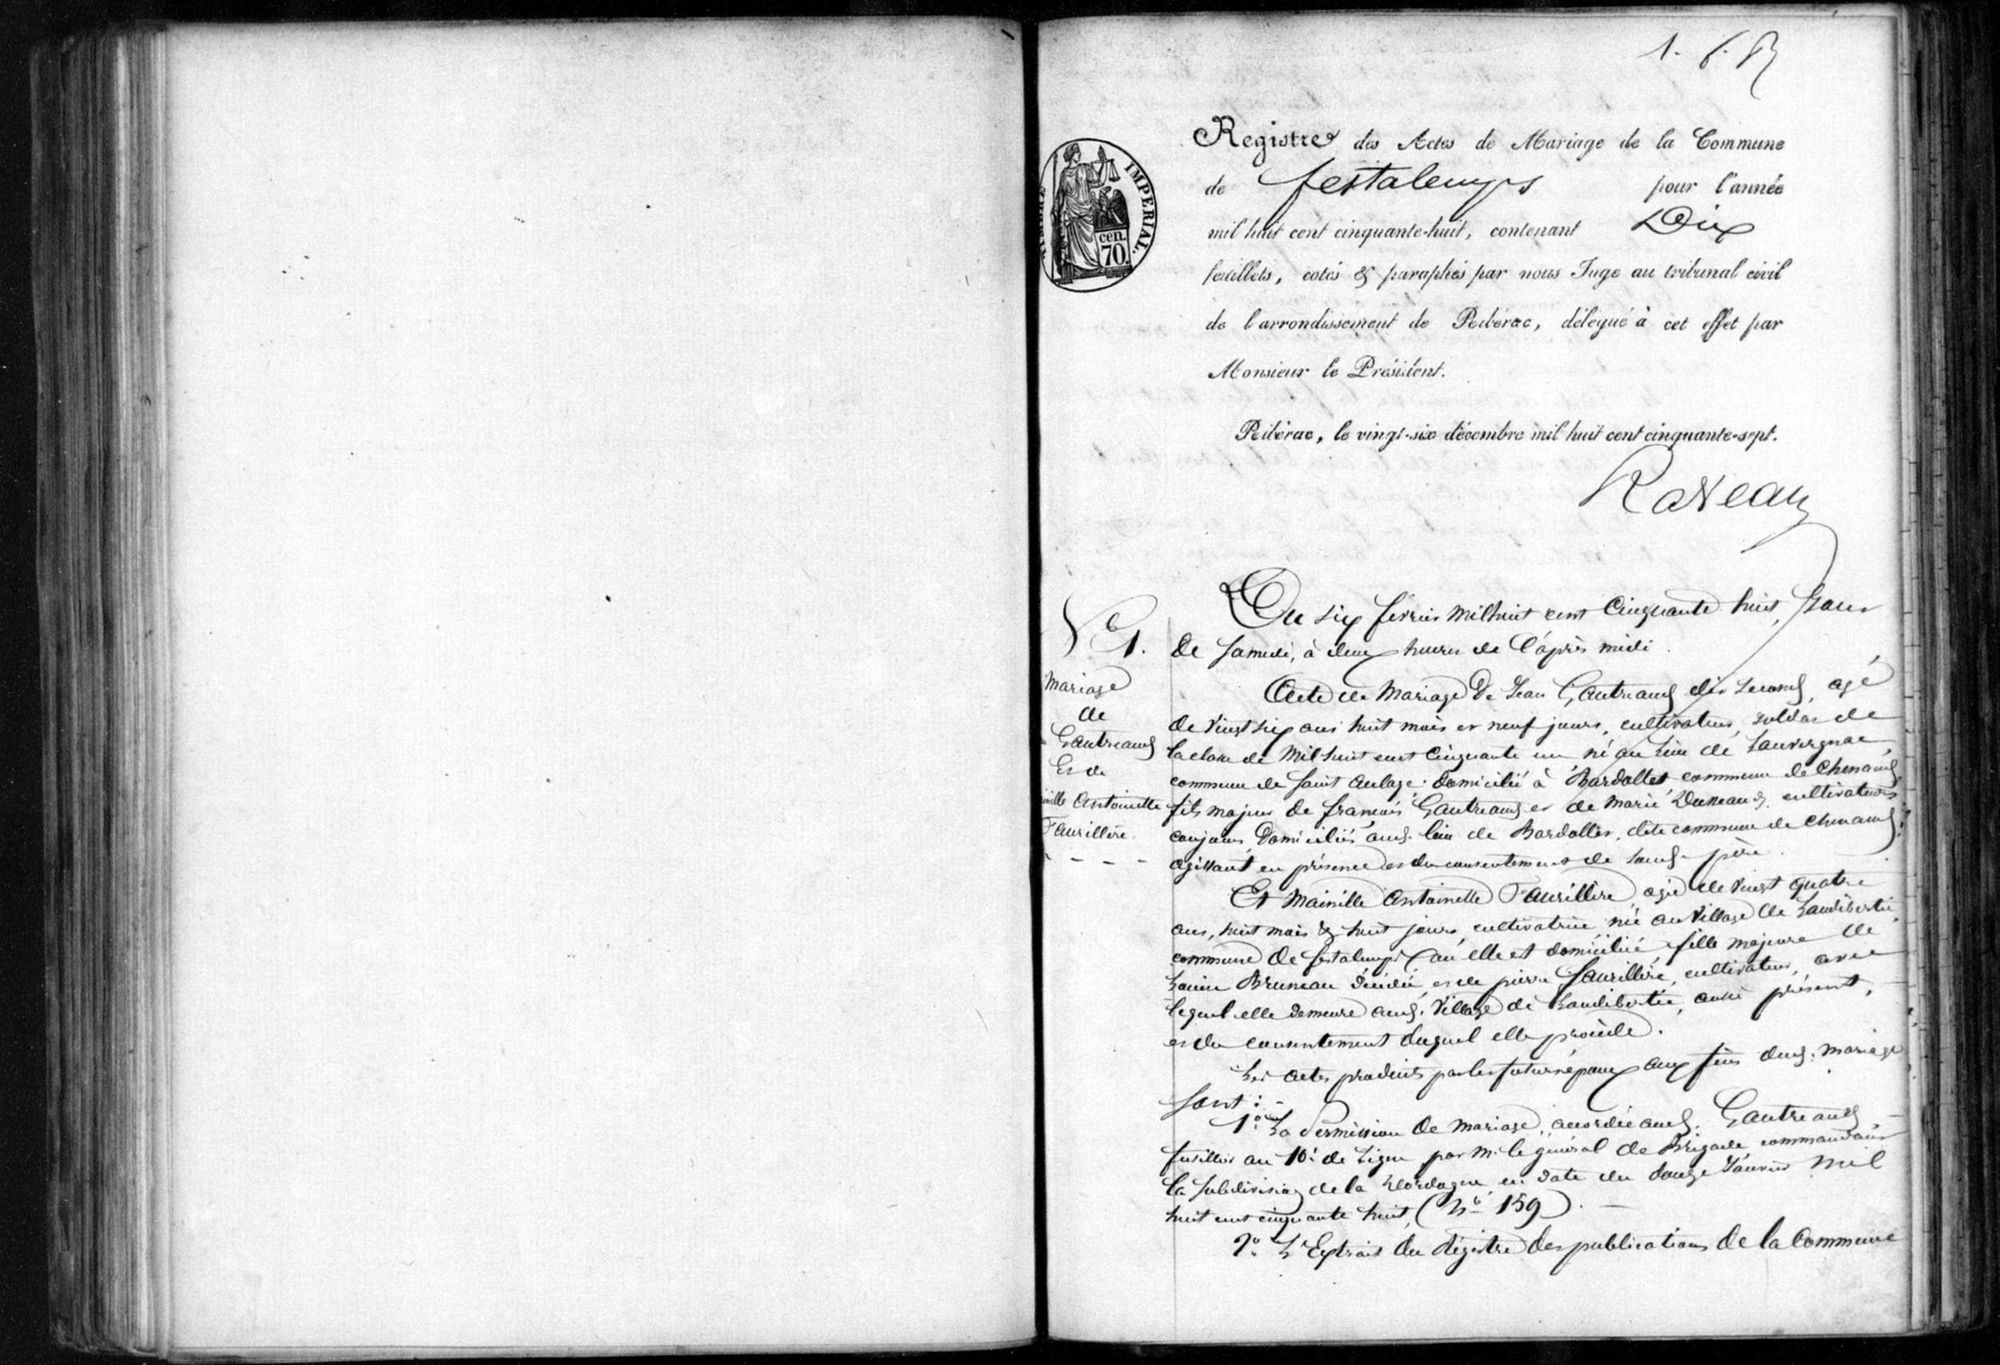 1. f. R
Registre des Actes de Mariage de la Commune
de festalemps pour l'année
mil huit cent cinquante-huit, contenant Dix
feuillets, cotés & paraphés par nous Juge au tribunal civil
de l'arrondissement de Ribérac, délégué à cet effet par
Monsieur le Président.
Ribérac, le vingt-six décembre mil huit cent cinquante-sept.
TIMBRE IMPERIAL.
cen.
70.
Du six février mil huit cent Cinquante huit, Jour
de Samedi, à deux heures de l'après midi.
N° 1.
Mariage
de
Gautreaud
Et de
Antoinette
Faurillère.
Acte de Mariage De Jean Gautreaud dit Second, agé
de vingt six ans huit mois et neuf jours, cultivateur, soldat de
la classe de Mil huit cent Cinquante un né au lieu de
commune de Saint Aulaye. Domicilié à Bardollet commune de Chenaud
fils majeur de francois Gautreaud et de Marie Duneaud, cultivateurs
conjoins Domiciliés aud. lieu de Bardollet, dite commune de Chenaud,
agissant en présence et du consentement de sond. père.
Et Mainille Antoinette Faurillère agée de vingt quatre
ans, huit mois & huit jours, cultivatrice, née au Village de Laudibertie
commune de festalemps où elle est domiciliée fille majeure de
Bruneau Décédé, et de pierre Faurillère, cultivateur, avec
lequel elle demeure aud. Village de Laudibertie, aussi présent,
et du consentement duquel elle procède.
Les actes produits par les futurs époux aux fins dud. mariage
Sont :
1° La Permission de Mariage, accordée aud. Gautreaud
fusillier au 10e de Ligne par Mr. le général de Brigade commandant
la Subdivision de la Dordogne en date du douze Janvier Mil
huit cent cinquante huit, (N° 159).
2° L'Extrait du Régistre des publications de la Commune